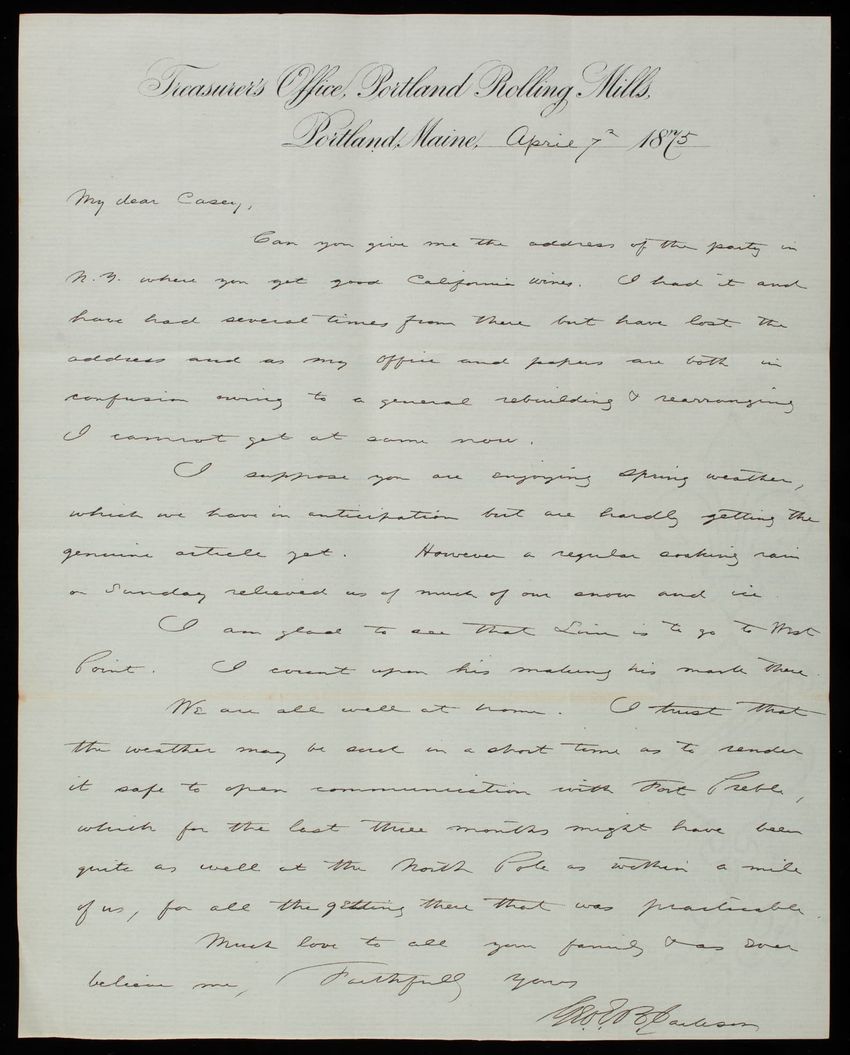 Treasurer's Office, Portland Rolling Mills,
Portland, Maine, April 7th 1875
My dear Casey,
Can you give me the address of the party in
N.Y. where you get good California wines. I had it and
have had several times from there but have lost the
address and as my office and papers are both in
confusion owing to a general rebuilding & rearranging
I cannot get at same now.
I suppose you are enjoying spring weather,
which we have in anticipation but are hardly getting the
genuine article yet. However a regular soaking rain
on Sunday relieved us of much of our snow and ice.
I am glad to see that is to go to West
Point. I count upon his making his mark there.
We are all well at home. I trust that
the weather may be such in a short time as to render
it safe to open communication with Fort Preble,
which for the last three months might have been
quite as well at the North Pole as within a mile
of us, for all the getting there that was practicable.
Much love to all your family & as ever
believe me, Faithfully Yours
Geo. E. B. Jackson